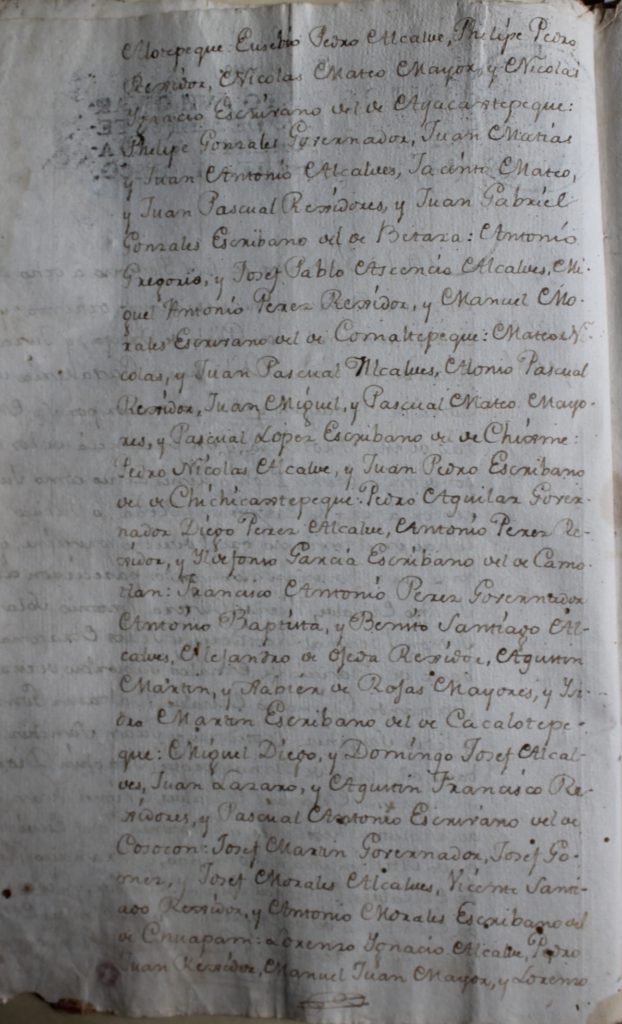 Alotepeque: Eusebio Pedro Alcalde, Phelipe Pedro
Rexidor, Nicolas Mateo Mayor, y Nicolas
Ygnacio Escrivano del de Ayacastepeque:
Phelipe Gonzales Governador, Juan Matias
y Juan Antonio Alcaldes, Jacinto Mateo,
y Juan Pascual Rexidores, y Juan Gabriel
Gonzales Escribano del de Betaza: Antonio
Gregorio, y Josef Pablo Ascencio Alcaldes, Mi-
guel Antonio Perez Rexidor, y Manuel Mo-
rales Escrivano del de Comaltepeque: Mateo Ni-
colas, y Juan Pascual Alcaldes, Alonso Pascual
Rexidor, Juan Miguel, y Pascual Mateo Mayo-
res, y Pascual Lopez Escribano del de Chisme:
Pedro Nicolas Alcalde, y Juan Pedro Escribano
del de Chichicastepeque: Pedro Aguilar Gover-
nador Diego Perez Alcalde, Antonio Perez Re-
xidor, y Yldefonso Garcia Escribano del de Camo-
tlan: Francisco Antonio Perez Governador
Antonio Baptista, y Benito Santiago Al-
caldes, Alejandro de Ojeda Rexidor, Agustin
Martin, y Fabien de Rojas Mayores, y Ysi-
dro Martin Escribano del de Cacalotepe-
que: Miguel Diego, y Domingo Josef Alcal-
des, Juan Lazaro, y Agustin Francisco Re-
xidores, y Pascual Antonio Escrivano del de
Cosocon: Josef Martin Governador, Josef Go-
mez, y Josef Morales Alcaldes, Vicente Santi-
ago Rexidor, y Antonio Morales Escribano del
de Chuapam: Lorenzo Ygnacio Alcalde, Pedro
Juan Rexidor, Manuel Juan Mayor, y Lorenzo